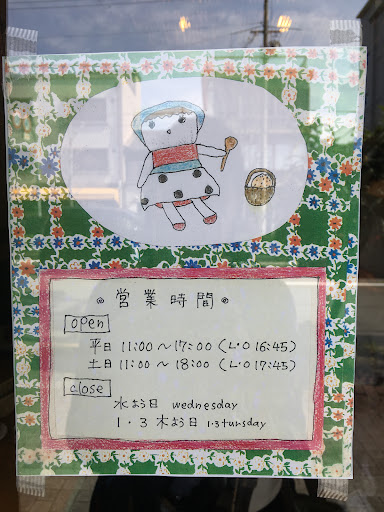 ◎ 営業時間 ◎
open
平日 11:00～17:00 (L・O 16:45)
土日 11:00～18:00 (L・O 17:45)
close
水よう日 wednesday
1・3 木よう日 1・3 tursday